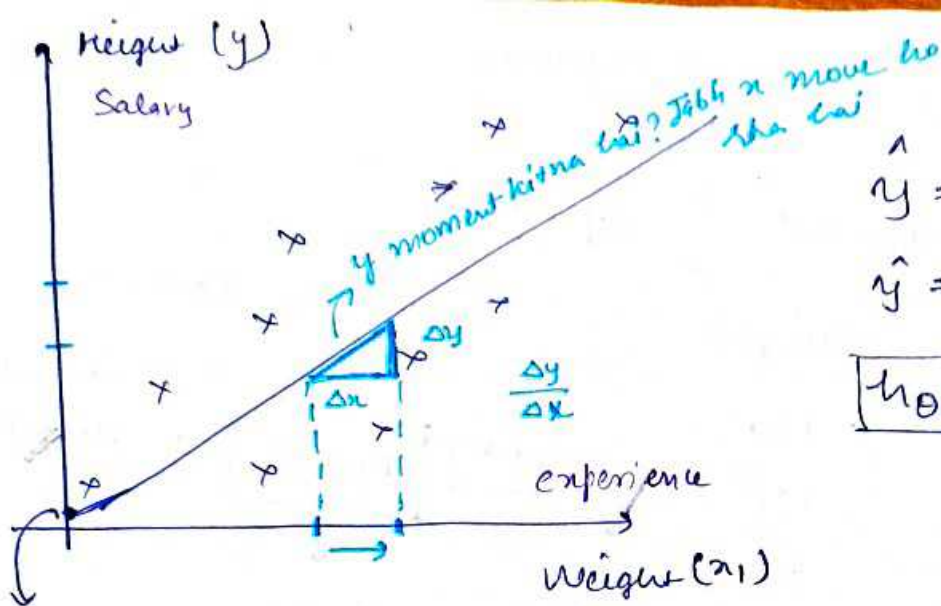 Height (y)
Salary
y moment kitna hai? Jabh x move ho
rha hai
ŷ =
ŷ =
hθ
Δy
Δx
Δy/Δx
experience
Weight (x₁)